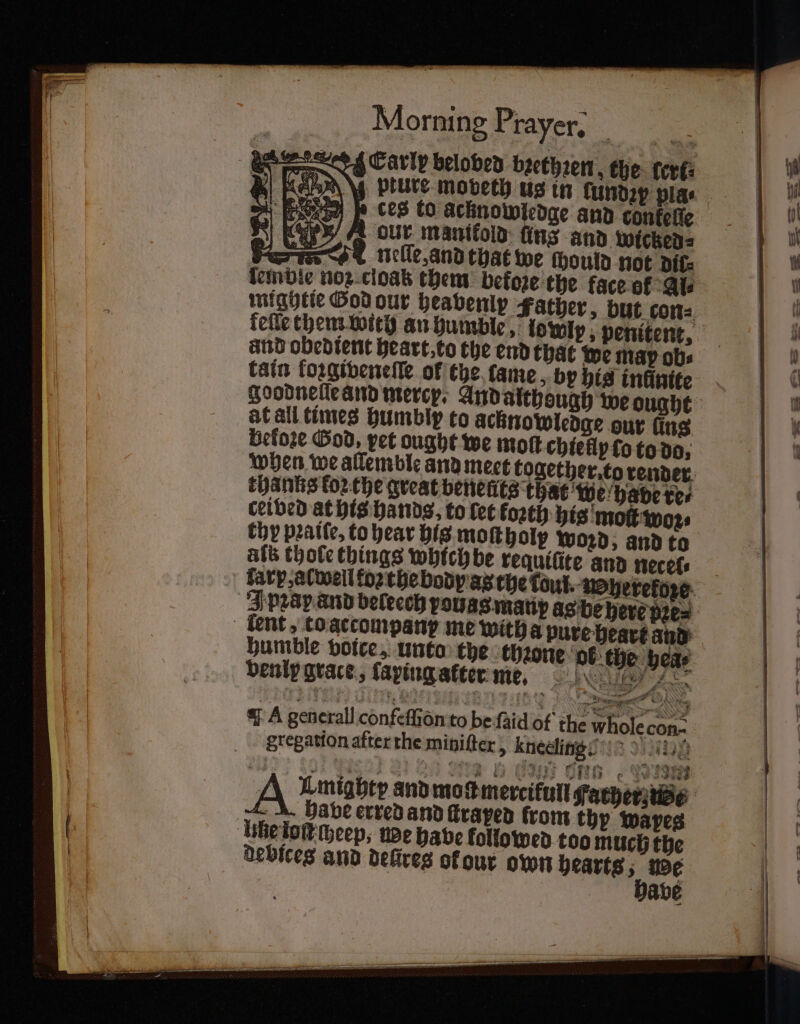 Morning Prayer.
DEarly beloved brethren, the ſcri-
pture moveth us in ſundry pla-
ces to acknowledge and confeſſe
our manifold ſins and wicked-
neſſe, and that we ſhould not diſ-
ſemble nor cloak them before the face of Al-
mightie God our heavenly Father, but con-
feſſe them with an humble, lowly, penitent,
and obedient heart, to the end that we may ob-
tain forgiveneſſe of the ſame, by his infinite
goodneſſe and mercy. And although we ought
at all times humbly to acknowledge our ſins
before God, yet ought we moſt chiefly ſo to do,
when we aſſemble and meet together, to render
thanks for the great benefits that we have re-
ceived at his hands, to ſet forth his moſt wor-
thy praiſe, to hear his moſt holy word, and to
aſk thoſe things which be requiſite and neceſ-
ſary, aſwell for the body as the ſoul. Wherefore
I pray and beſeech you as many as be here pre-
ſent, to accompany me with a pure heart and
humble voice, unto the throne of the hea-
venly grace, ſaying after me.
¶ A generall confeſſion to be ſaid of the whole con-
gregation after the miniſter, kneeling.
ALmighty and moſt mercifull Father; we
have erred and ſtrayed from thy wayes
like loſt ſheep, we have followed too much the
devices and deſires of our own hearts, we
have